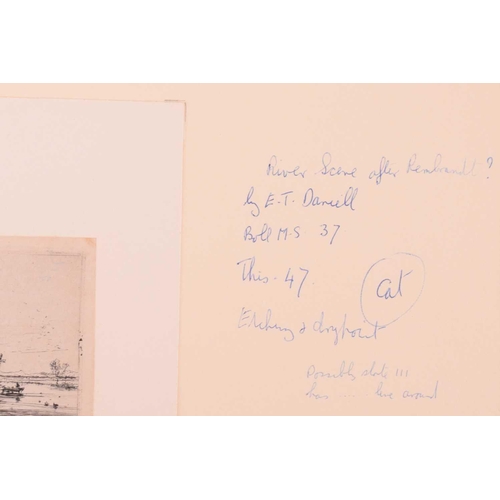 River Scene after Rembrandt?
by E.T. Daniell
Boll M.S 37
This - 47.
Cat
Etching & drypoint
Possibly state III
has line around